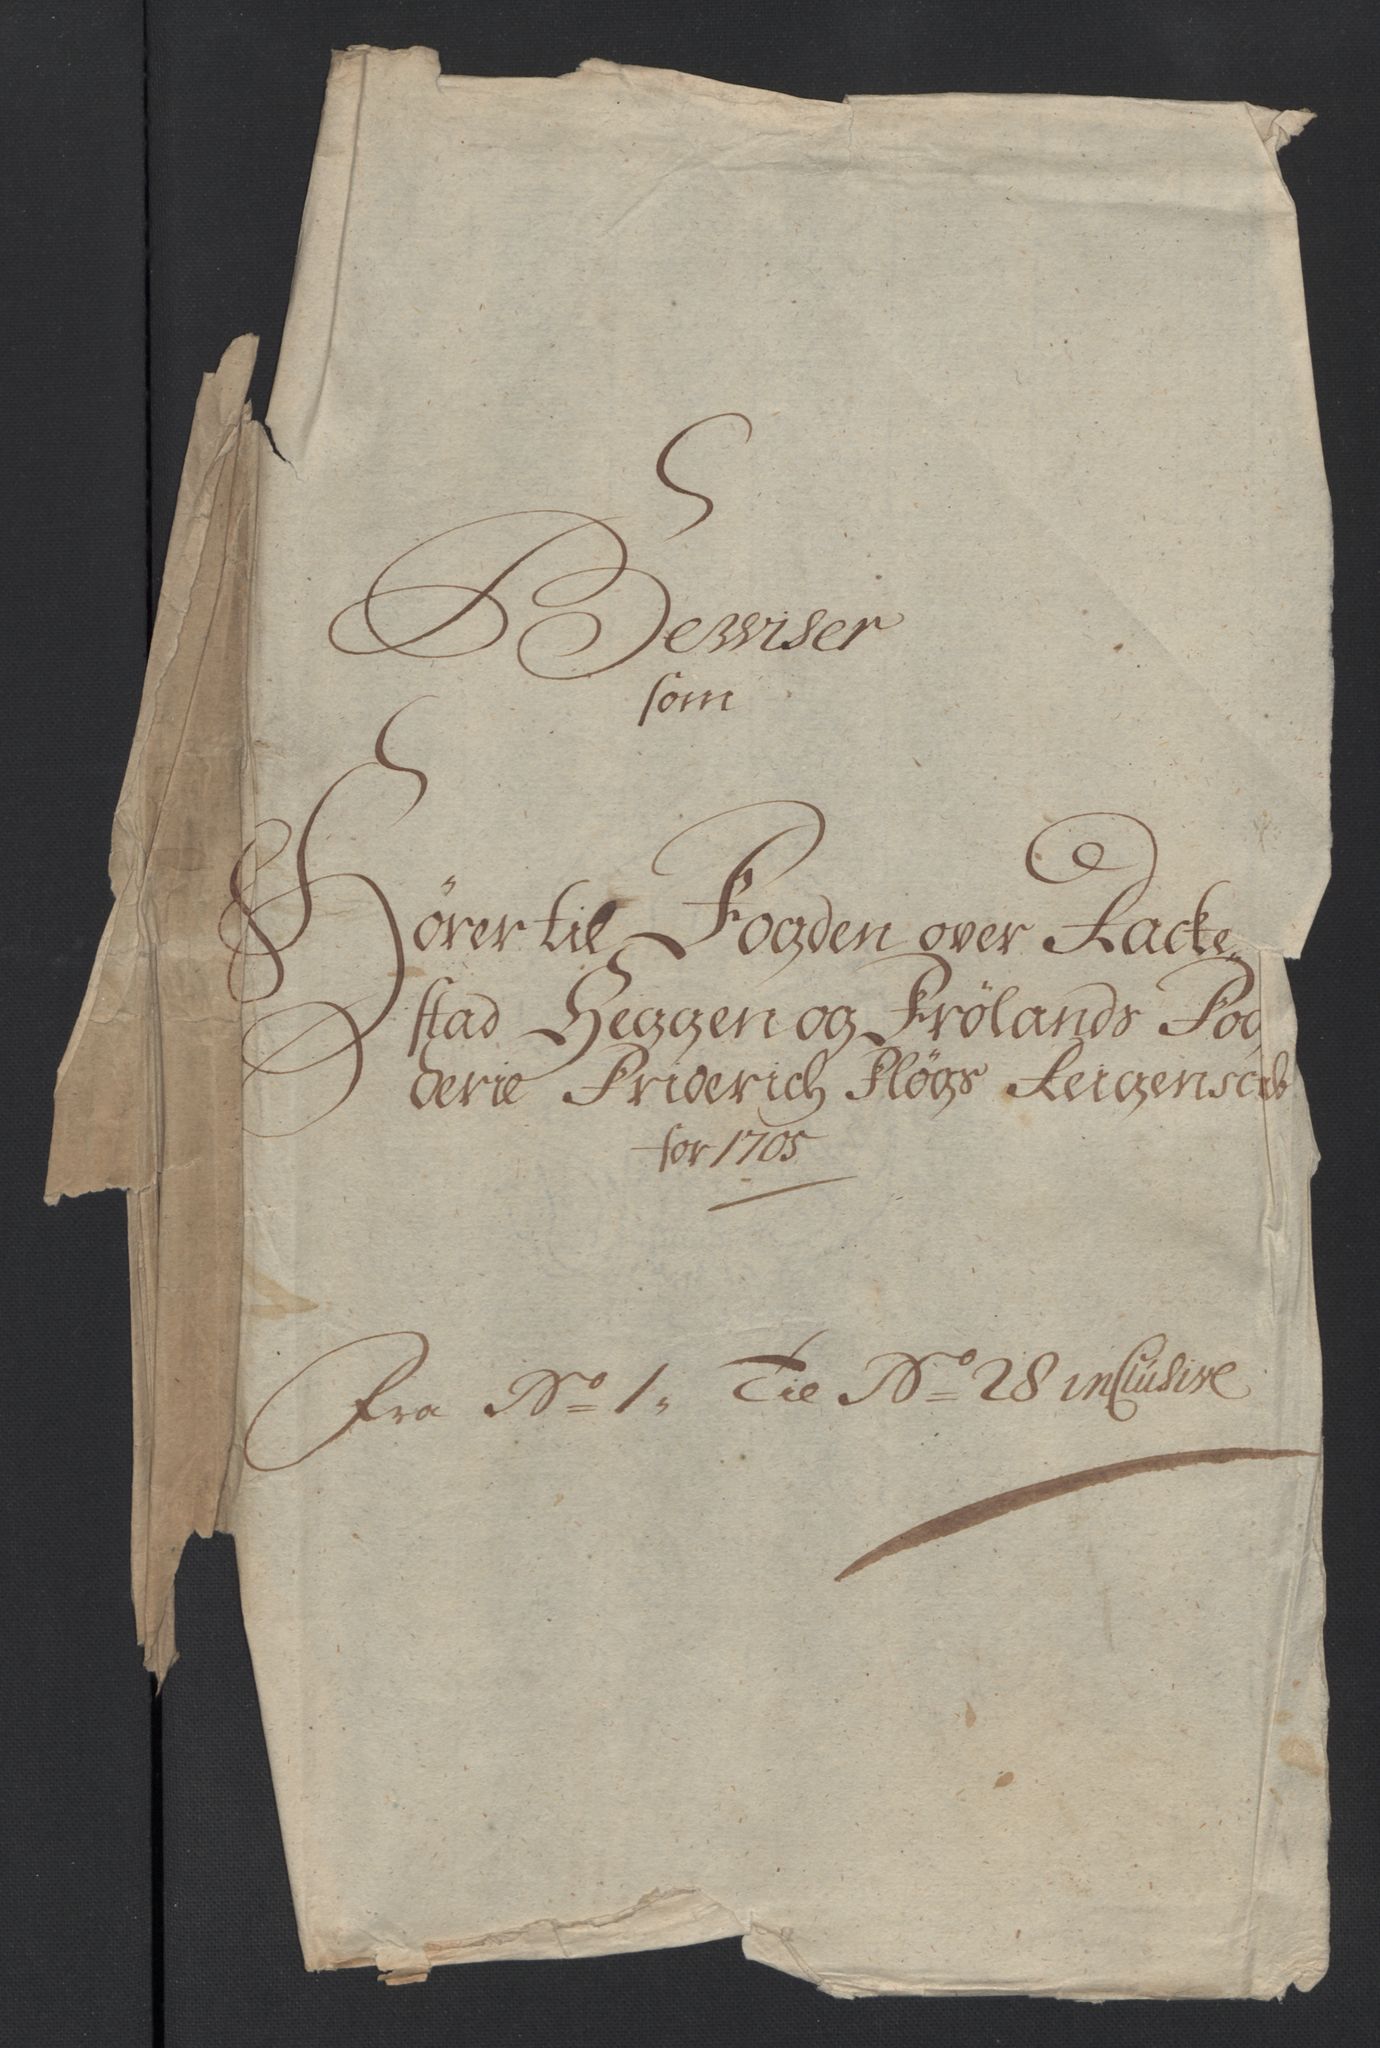 Bewiser
som
Hörer til Fogden over Racke„
stad Heggen og Frölands Fog
derie Friderich Pløgs Reigenscab
for 1705
Fra No 1. Til No 28 inclusive